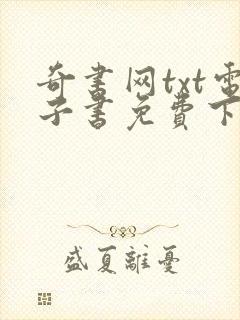 奇书网txt电
子书免费下
盛夏離憂